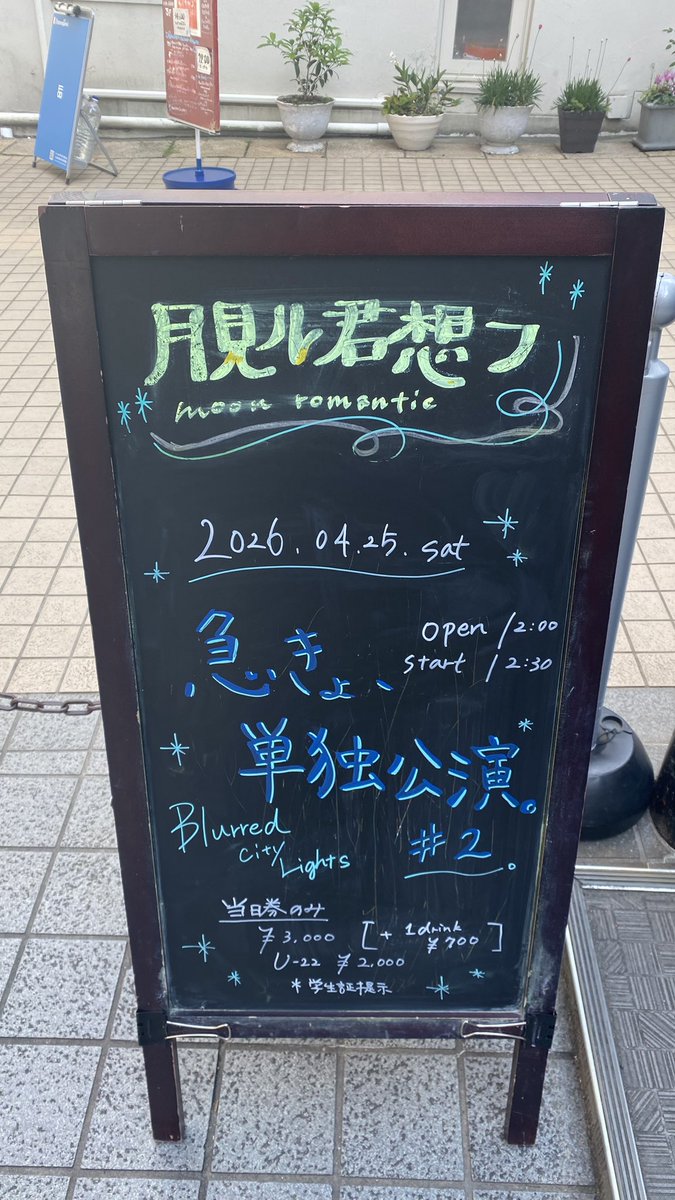 月見ル君想フ
moon romantic
2026.04.25.sat
open /12:00
start /12:30
急きょ、
単独公演。
Blurred
City
Lights
#2.
当日券のみ
¥3,000 [+ 1drink ¥700]
U-22 ¥2,000
*学生証提示